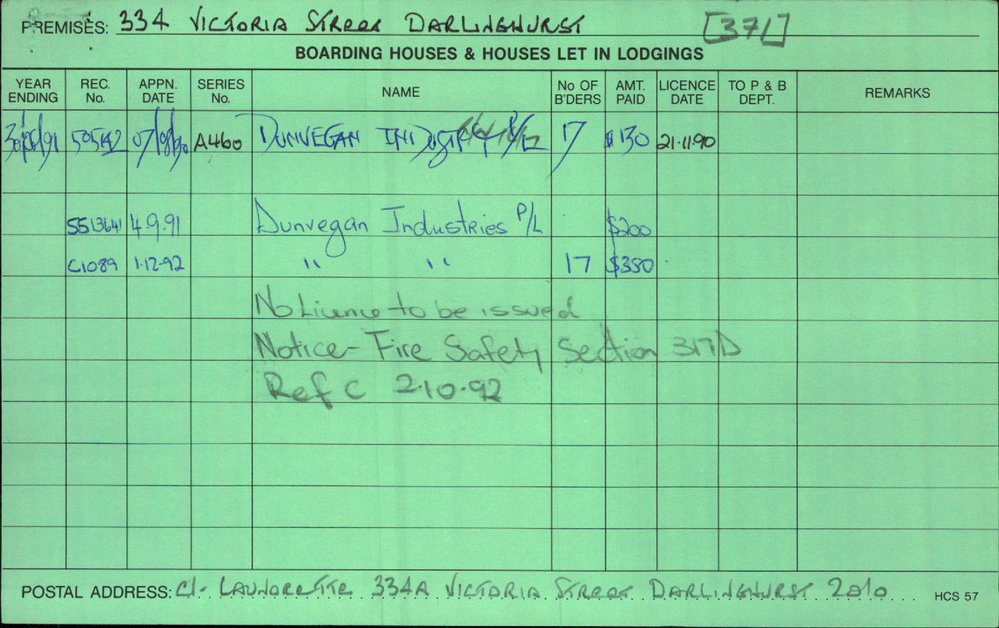 PREMISES: 334 VICTORIA STREET DARLINGHURST [371]
BOARDING HOUSES & HOUSES LET IN LODGINGS
YEAR ENDING REC. No. APPN. DATE SERIES No. NAME No OF B'DERS AMT. PAID LICENCE DATE TO P & B DEPT. REMARKS
A460 DUNVEGAN 17 $130 21.11.90
5513641 4.9.91 Dunvegan Industries P/L $200
C1089 1.12.92 " " 17 $380
No Licence to be issued
Notice - Fire Safety Section 317D
Ref C 2.10.92
POSTAL ADDRESS: C/- LAUNDRETTE 334A VICTORIA STREET DARLINGHURST 2010 HCS 57